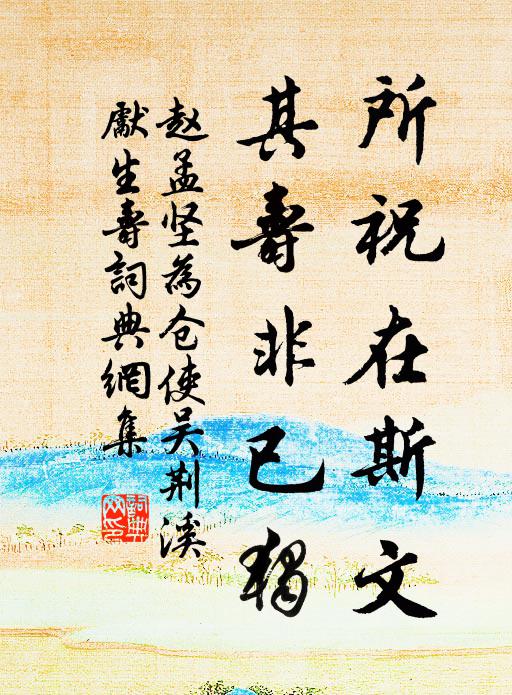 所祝在斯文
其壽非已獨
赵孟坚為仓使吴荆溪
獻生壽詞典網集
詞典